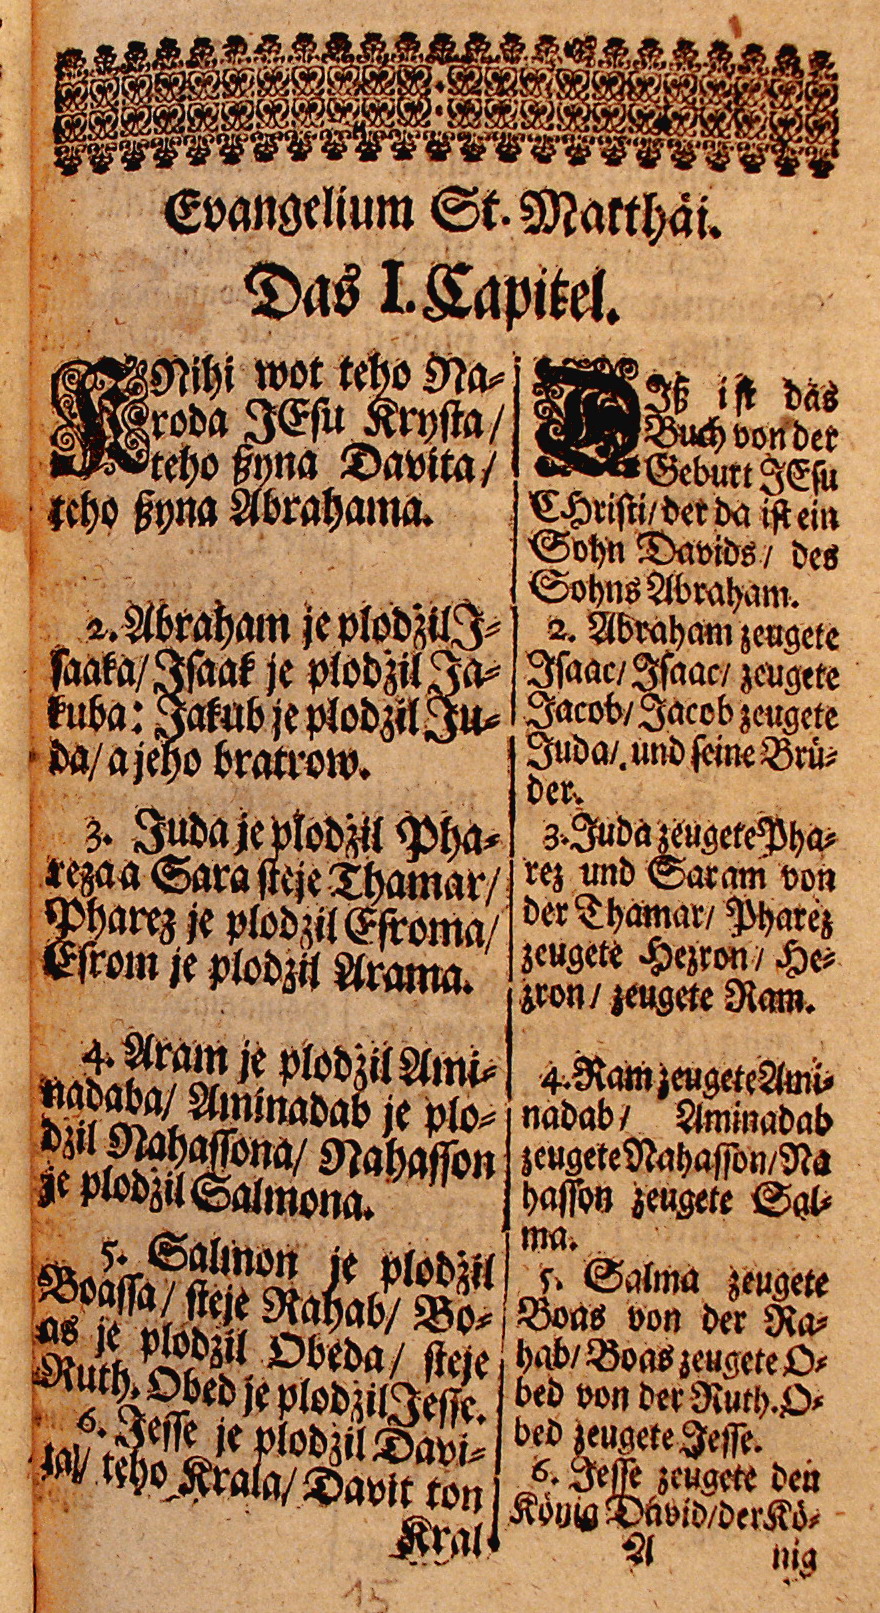 Evangelium St. Matthäi.
Das I. Capitel.
KNihi wot teho Na-
roda JEsu Krysta/
teho ßyna Davita/
teho ßyna Abrahama.
2. Abraham je plodżil J-
saaka/ Jsaak je plodżil Ja-
kuba: Jakub je plodżil Ju-
da/ a jeho bratrow.
3. Juda je plodżil Pha-
reza a Sara steje Thamar/
Pharez je plodżil Esroma/
Esrom je plodżil Arama.
4. Aram je plodżil Ami-
nadaba/ Aminadab je plo-
dżil Nahassona/ Nahasson
je plodżil Salmona.
5. Salmon je plodżil
Boassa/ steje Rahab/ Bo-
as je plodżil Obeda/ steje
Ruth. Obed je plodżil Jesse.
6. Jesse je plodżil Davi-
ta/ teho Krala/ Davit ton
Kral
DIß ist das
Buch von der
Geburt JEsu
CHristi/ der da ist ein
Sohn Davids/ des
Sohns Abraham.
2. Abraham zeugete
Isaac/ Isaac/ zeugete
Jacob/ Jacob zeugete
Juda/. und seine Brü-
der.
3. Juda zeugete Pha-
rez und Saram von
der Thamar/ Pharez
zeugete Hezron/ He-
zron/ zeugete Ram.
4. Ram zeugete Ami-
nadab/ Aminadab
zeugete Nahasson/ Na
hasson zeugete Sal-
ma.
5. Salma zeugete
Boas von der Ra-
hab/ Boas zeugete O-
bed von der Ruth. O-
bed zeugete Jesse.
6. Jesse zeugete den
König David/ der Kö-
A nig
15